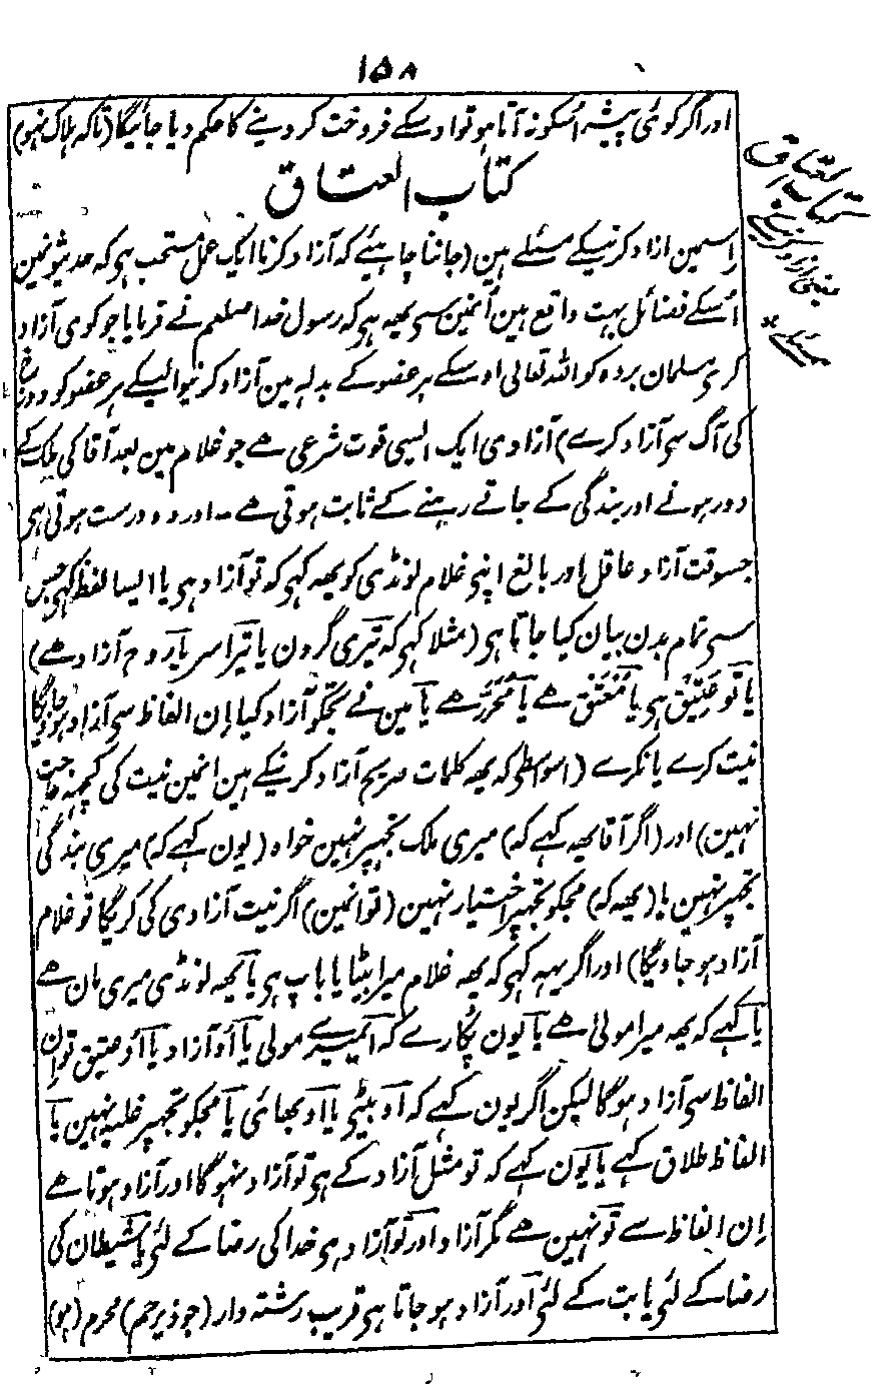 ۱۵۸
اور اگر کوئی پیشہ اُسکو نہ آتا ہو تو اوسکے فروخت کر دینے کا حکم دیا جائیگا (تاکہ ہلاک نہو)
کتاب العتاق
اِسمین ازاد کرنیکے مسئلے ہین (جاننا چاہیئے کہ آزاد کرنا ایک عمل مستحب ہی کہ حدیثونمین
اُسکے فضائل بہت واقع ہین اُنمین سی یھہ ہی کہ رسول خدا صلعم نے فرمایا جو کوی آزاد
کری مسلمان بردہ کو اللہ تعالی اوسکے ہر عضو کے بدلہ مین آزاد کرنیوالیکے ہر عضو کو دوزخ
کی آگ سی آزاد کرے) آزادی ایک ایسی قوت شرعی ھے جو غلام مین بعد آقا کی ملک کے
دور ہونے اور بندگی کے جاتے رہنے کے ثابت ہوتی ھے ـ اور وہ درست ہوتی ہی
جسوقت آزاد عاقل اور بالغ اپنی غلام لونڈی کو یھہ کہی کہ تو آزاد ہی یا ایسا لفظ کہی جس
سی تمام بدن بیان کیا جاتا ہی (مثلا کہی کہ تیری گردن یا تیرا سر یا روح آزاد ھے)
یا تو عتیق ہی یا مُعتَق ھے یا مُحَرَّر ھے یا مین نے تجکو آزاد کیا اِن الفاظ سی آزاد ہو جائیگا
نیت کرے یا نکرے (اسواسطی کہ یھہ کلمات صریح آزاد کرنیکے ہین انمین نیت کی کچھہ حاجت
نہین) اور (اگر آقا یھہ کہے کہ) میری ملک تجہپر نہین خواہ (یون کہے کہ) میری بندگی
تجہپر نہین یا (یھہ کہ) مجکو تجہپر اختیار نہین (تو انمین) اگر نیت آزادی کی کریگا تو غلام
آزاد ہو جاویگا) اور اگر یہہ کہی کہ یھہ غلام میرا بیٹا یا باپ ہی یا یھہ لونڈی میری مان ھے
یا کہے کہ یھہ میرا مولیٰ ھے یا یون پُکارے کہ آ میرے مولی یا اَو آزاد یا اَو عتیق تو اِن
الفاظ سی آزاد ہوگا لیکن اگر یون کہے کہ آو بیٹی یا آو بھائی یا مجکو تجہپر غلبہ نہین یا
الفاظ طلاق کہے یا یون کہے کہ تو مثل آزاد کے ہی تو آزاد منہوگا اور آزاد ہوتا ھے
اِن الفاظ سے تو نہین ھے مگر آزاد اور تو آزاد ہی خدا کی رضا کے لئی یا شیطان کی
رضا کے لئی یا بت کے لئی اور آزاد ہو جاتا ہی قریب رشتہ دار (جو ذیرحم) محرم (ہو)
کتاب العتاق
یعنی آزاد کرنیکے
مسئلے